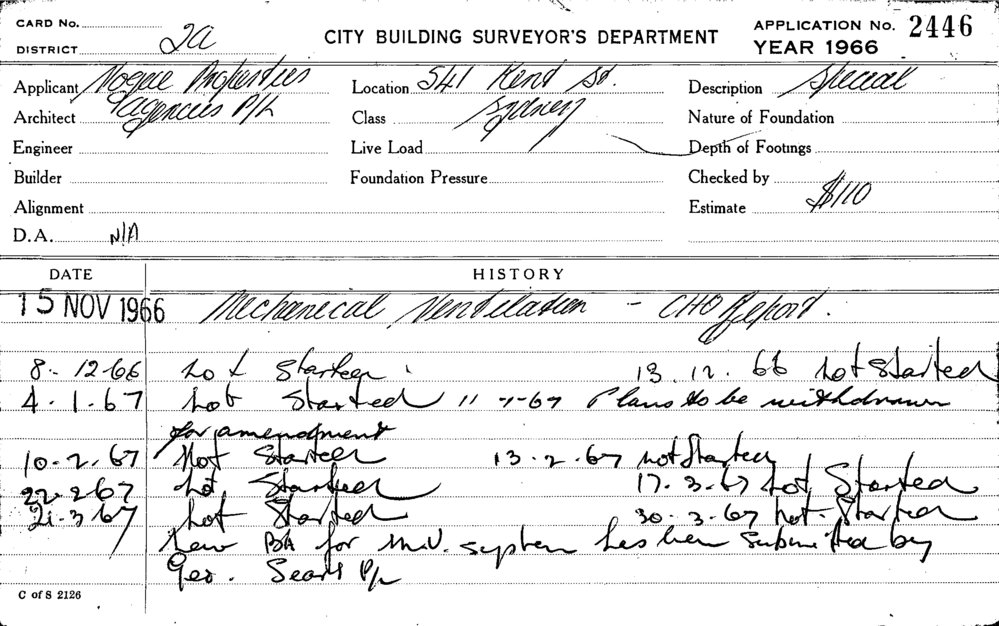 CARD No. APPLICATION No. 2446
DISTRICT 2a CITY BUILDING SURVEYOR'S DEPARTMENT YEAR 1966
Applicant Vogue Properties Location 541 Kent St. Description Special
Architect Agencies P/L Class Sydney Nature of Foundation
Engineer Live Load Depth of Footings
Builder Foundation Pressure Checked by
Alignment Estimate $110
D.A. N/A
DATE HISTORY
15 NOV 1966 Mechanical Ventilation - CHO Report.
8-12-66 Not Started 13.12.66 Not Started
4-1-67 Not Started 11-1-67 Plans to be withdrawn
for amendment
10-2-67 Not Started 13-2-67 not Started
22-2-67 Not Started 17-3-67 Not Started
21-3-67 Not Started 30-3-67 Not Started
New BA for M.V. system has been submitted by
Geo. P/L
C of S 2126